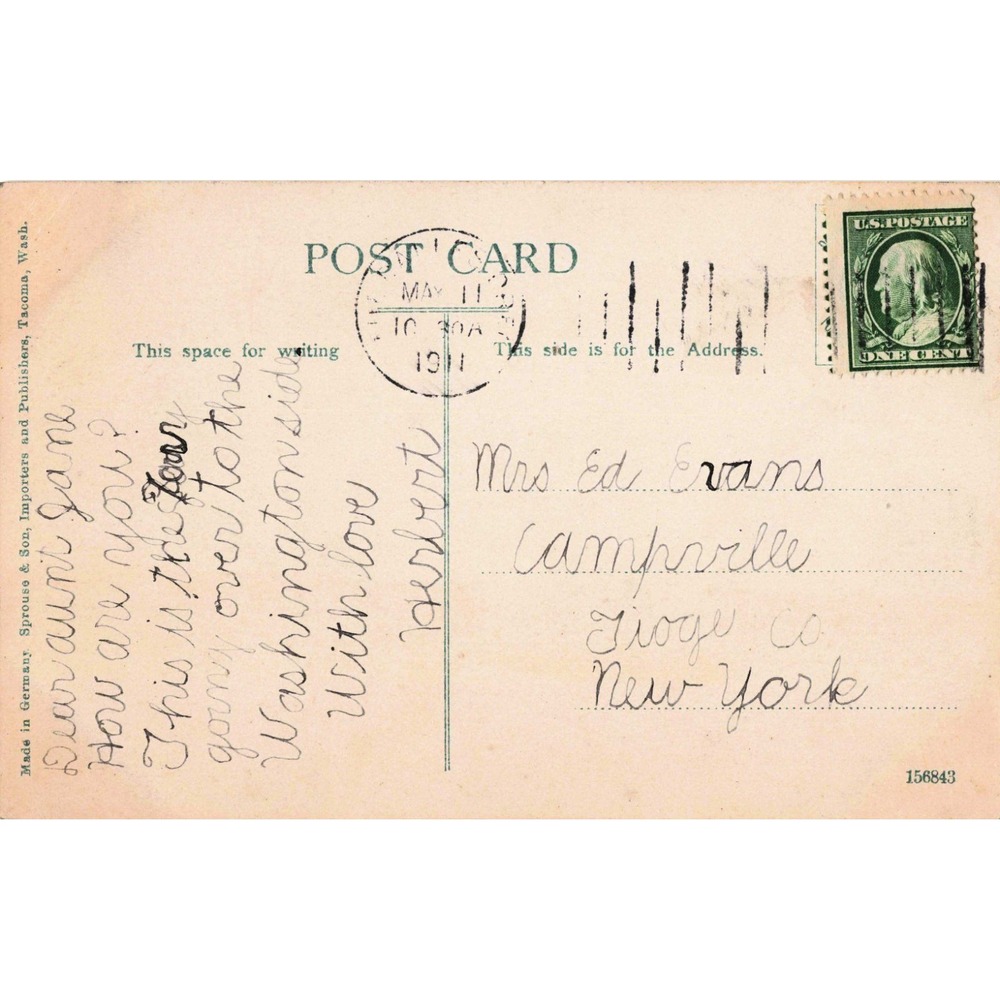 POST CARD
MAY 11
10 30A
1911
U.S. POSTAGE
ONE CENT
This space for writing
This side is for the Address.
Made in Germany. Sprouse & Son, Importers and Publishers, Tacoma, Wash.
Dear aunt Jane
How are you?
This is the
going over to the
Washington side
With love
Herbert
Mrs Ed Evans
Campville
Tioge Co
New York
156843